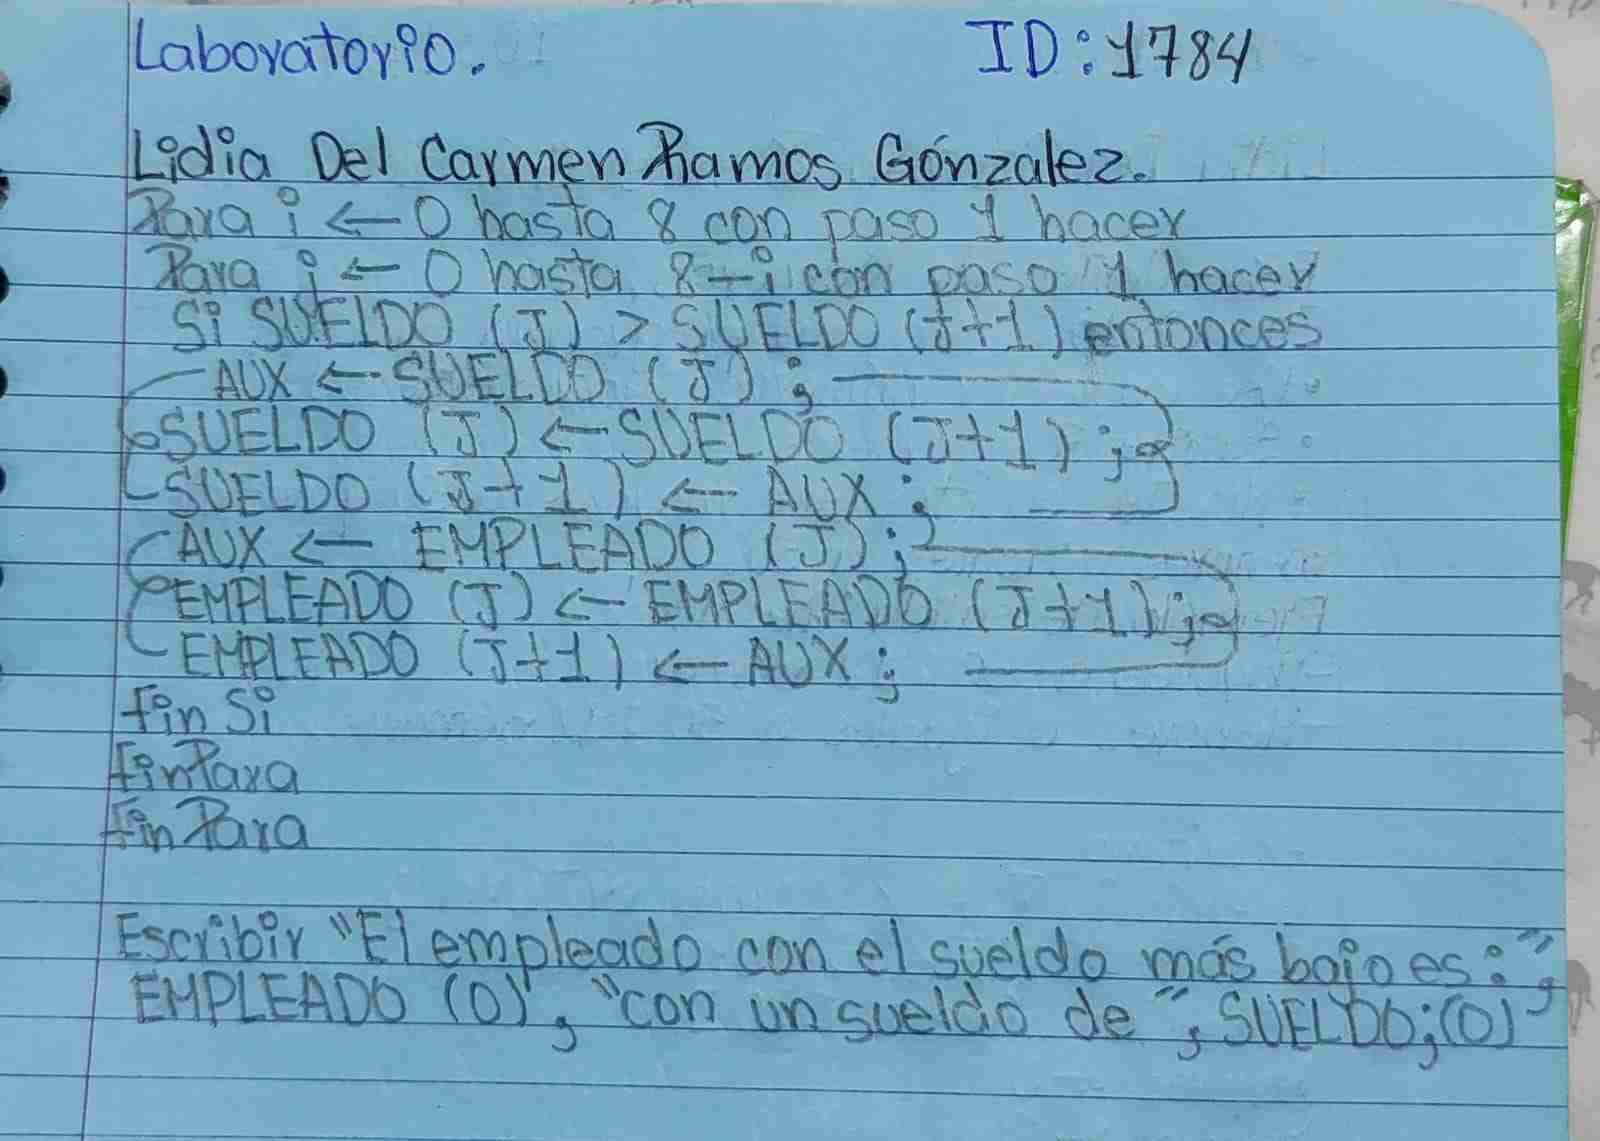 Laboratorio. ID:1784
Lidia Del Carmen Ramos Gónzalez.
Para i ← 0 hasta 8 con paso 1 hacer
Para j ← 0 hasta 8-i con paso 1 hacer
Si SUELDO (J) > SUELDO (J+1) entonces
AUX ← SUELDO (J);
SUELDO (J) ← SUELDO (J+1);
SUELDO (J+1) ← AUX;
AUX ← EMPLEADO (J);
EMPLEADO (J) ← EMPLEADO (J+1);
EMPLEADO (J+1) ← AUX;
fin Si
finPara
fin Para
Escribir "El empleado con el sueldo más bajo es:",
EMPLEADO (0), "con un sueldo de", SUELDO;(0)